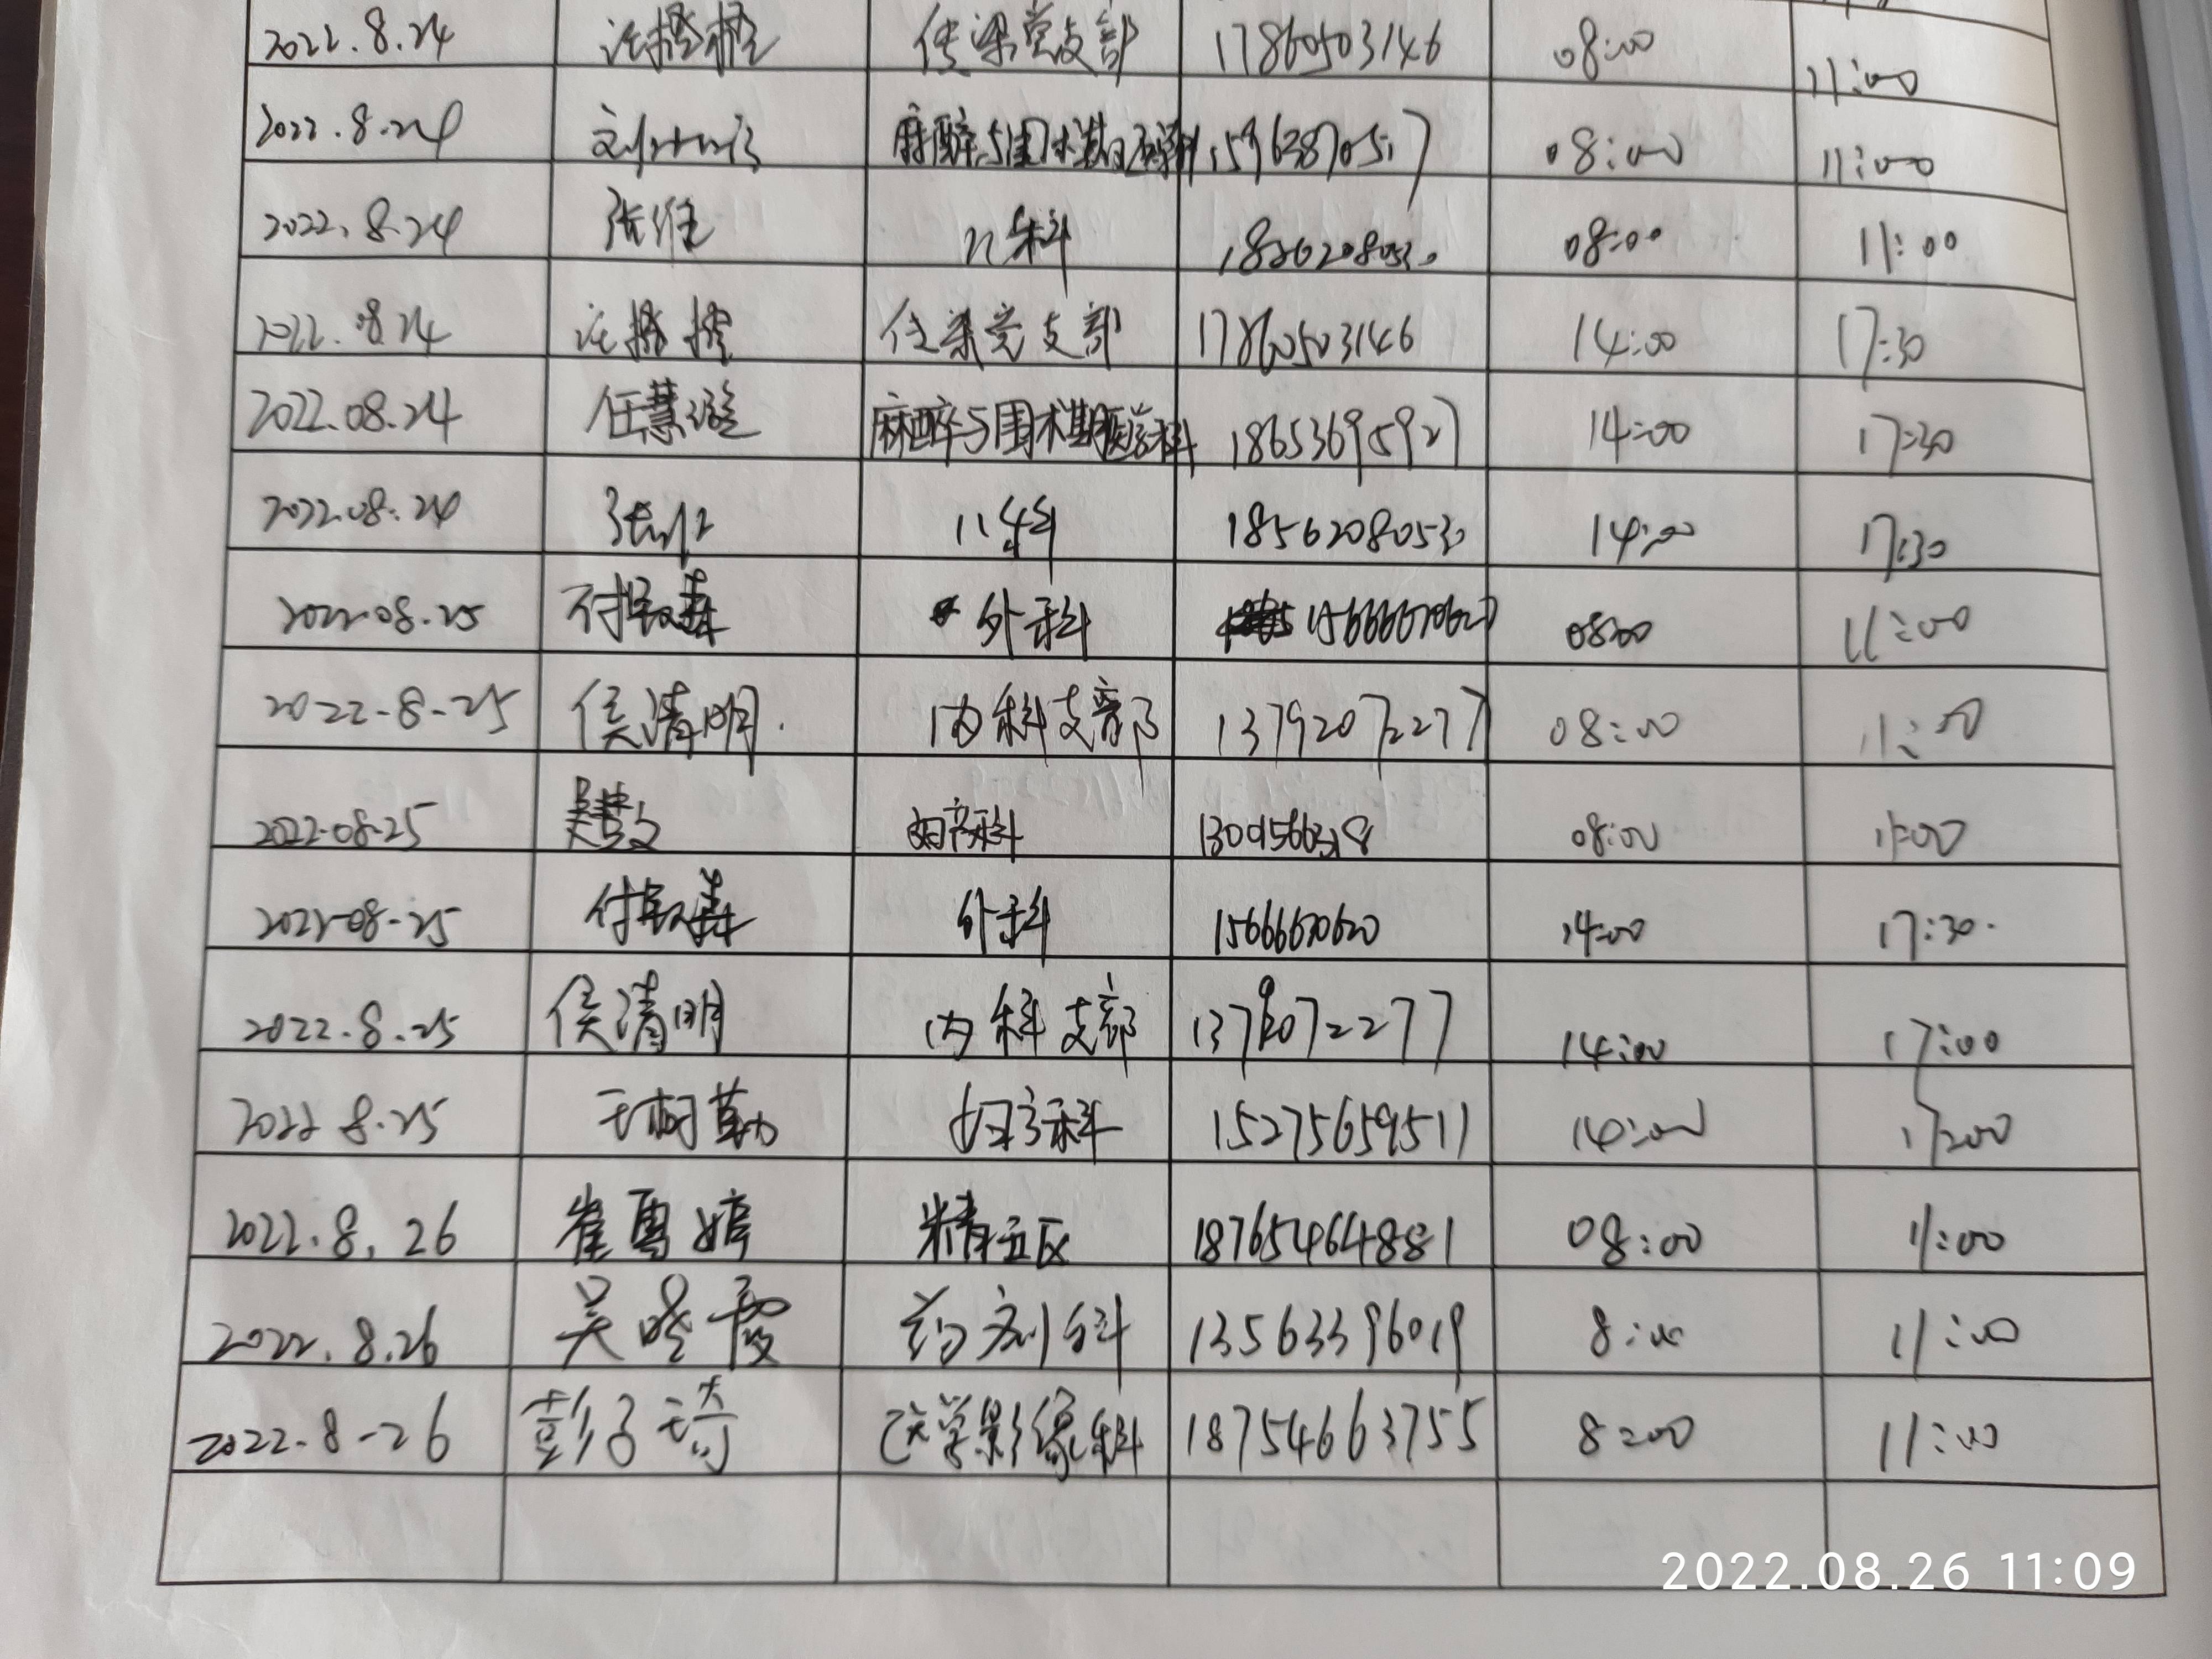 2022.8.24 传染党支部 17860503146 08:00 11:00
2022.8.24 麻醉与围术期医学科 15963870517 08:00 11:00
2022.8.24 张维 儿科 18562080530 08:00 11:00
2022.08.24 传染党支部 17860503146 14:00 17:30
2022.08.24 任慧璇 麻醉与围术期医学科 18653695927 14:00 17:30
2022.08.24 张维 儿科 18562080530 14:00 17:30
2022.08.25 外科 08:00 11:00
2022-8-25 侯清明 内科支部 13792072277 08:00 11:00
2022-08-25 吴慧文 妇产科 08:00 11:00
2022-08-25 外科 14:00 17:30
2022.8.25 侯清明 内科支部 13792072277 14:00 17:00
2022 8.25 妇产科 15275659511 14:00 17:00
2022.8.26 崔雪婷 精五区 18765464881 08:00 11:00
2022.8.26 吴晓霞 药剂科 13563396019 8:00 11:00
2022.8-26 彭子琦 医学影像科 18754663755 8:00 11:00
2022.08.26 11:09